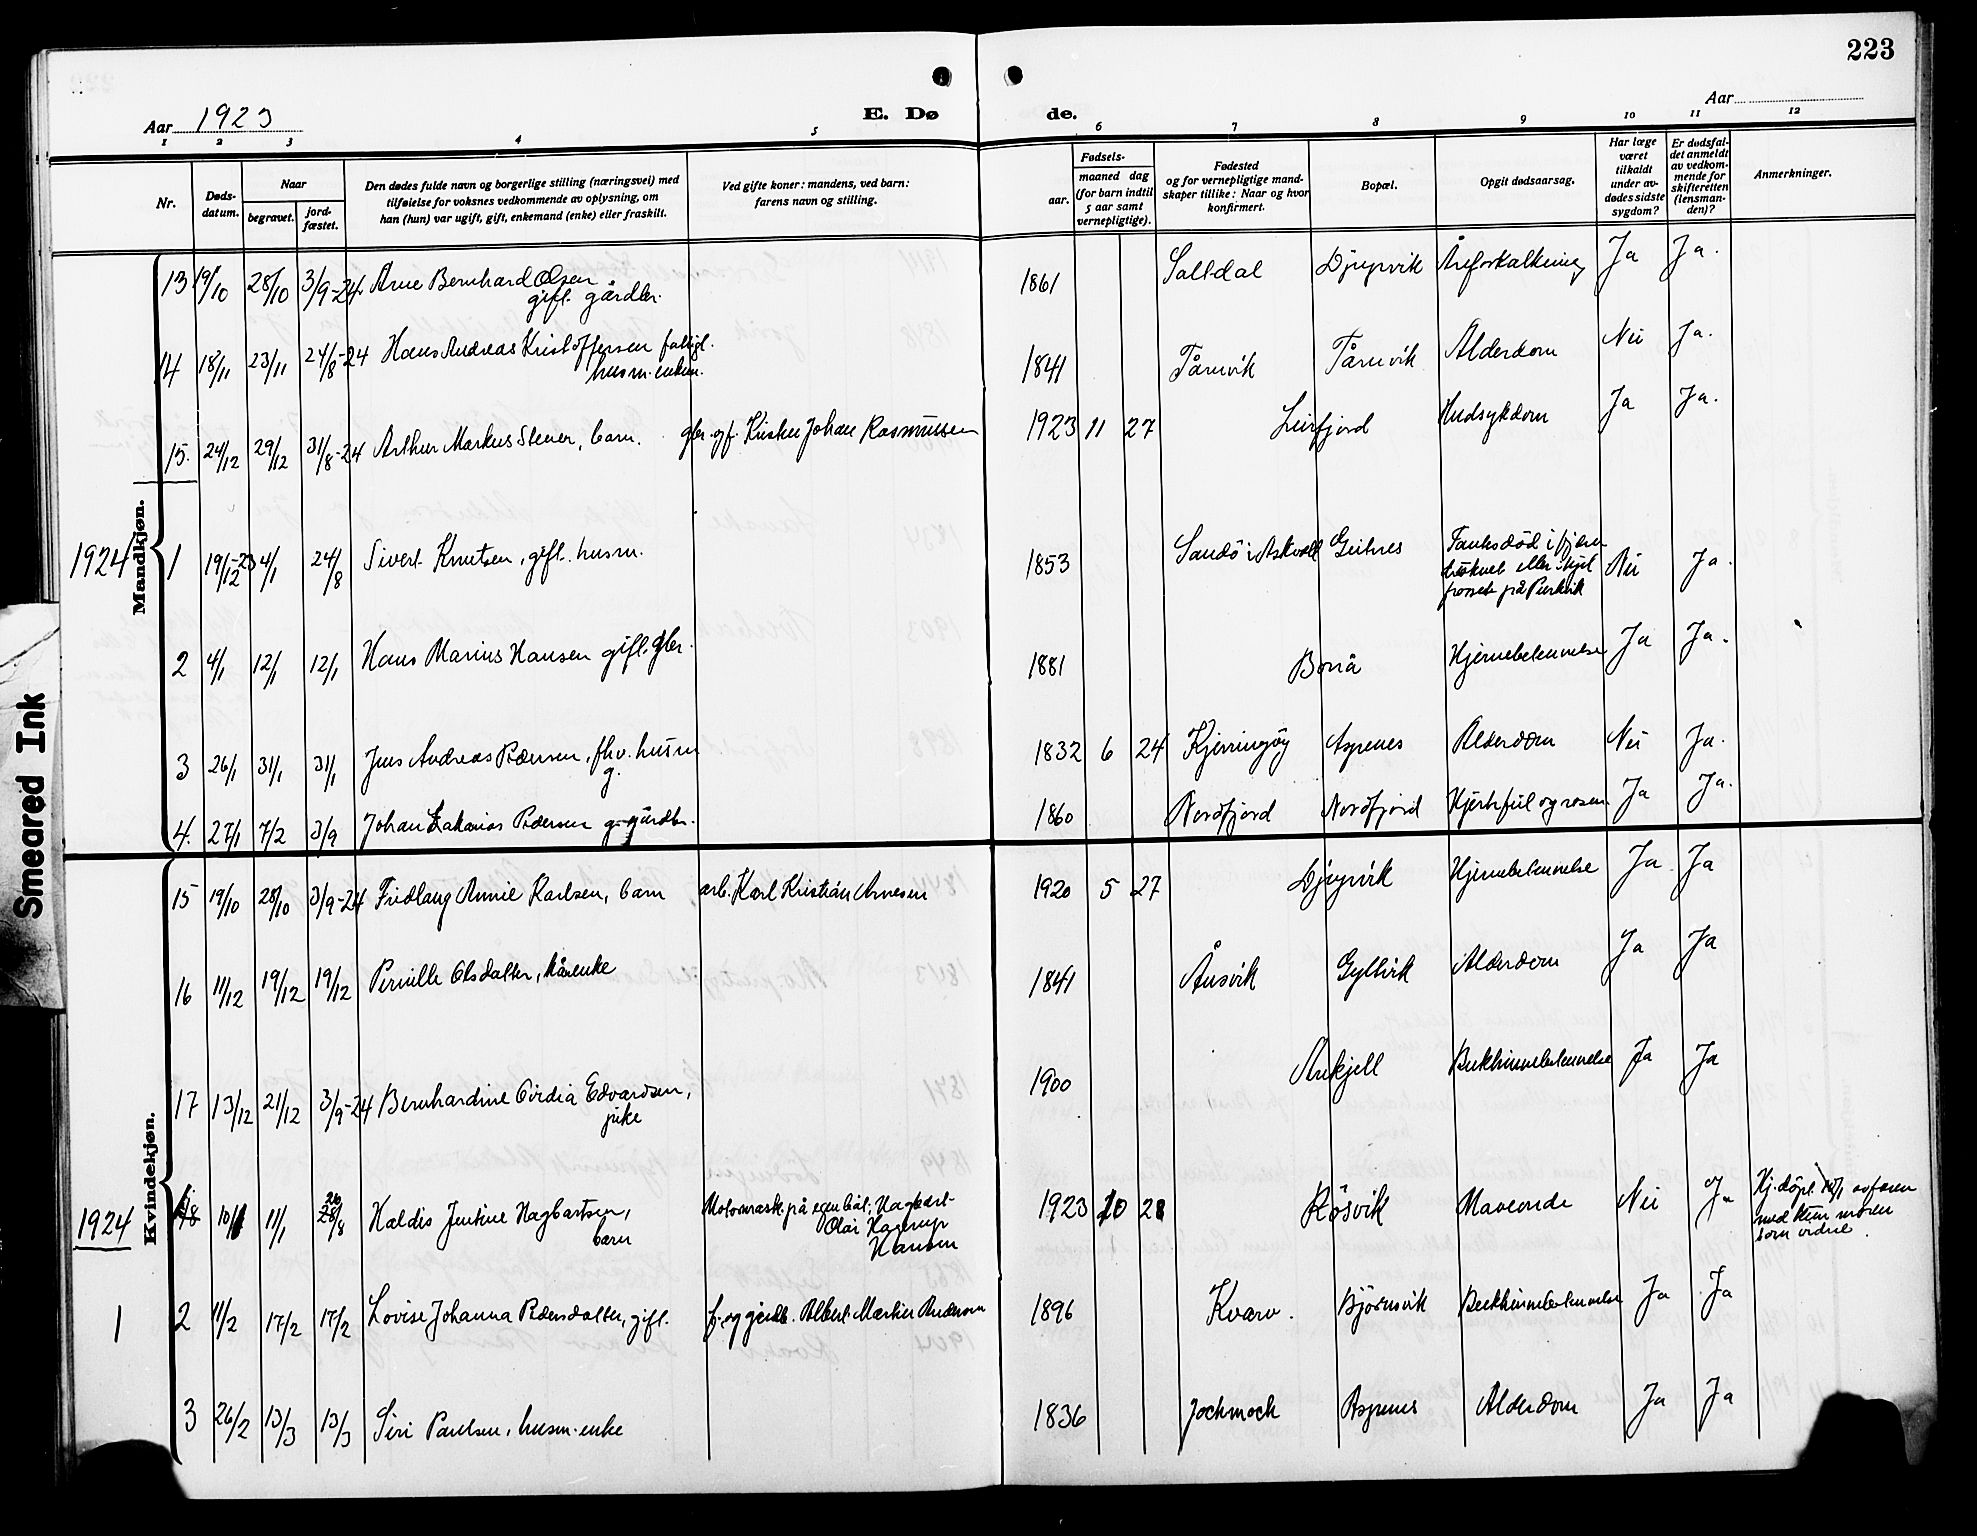 223
Aar 1923
E. Dø
de.
Aar
1 2 3 4 5 6 7 8 9 10 11 12
Nr.
Døds-
datum.
Naar
begravet.
jord-
fæstet.
Den dødes fulde navn og borgerlige stilling (næringsvei) med
tilføielse for voksnes vedkommende av oplysning, om
han (hun) var ugift, gift, enkemand (enke) eller fraskilt.
Ved gifte koner: mandens, ved barn:
farens navn og stilling.
Fødsels-
aar.
maaned dag
(for barn indtil
5 aar samt
vernepligtige).
Fødested
og for vernepligtige mand-
skaper tillike: Naar og hvor
konfirmert.
Bopæl.
Opgit dødsaarsag.
Har læge
været
tilkaldt
under av-
dødes sidste
sygdom?
Er dødsfal-
det anmeldt
av vedkom-
mende for
skifteretten
(lensman-
den)?
Anmerkninger.
Mandkjøn.
13 19/10 28/10 3/9-24 Arne Bernhard Olsen 1861 Saltdal Djupvik Åreforkalkning Ja Ja.
gift. gårdbr.
14 18/11 23/11 24/8-24 Hans Andreas Kristoffersen fattigl. 1841 Tårnvik Tårnvik Alderdom Nei Ja.
husm. enkem.
15. 24/12 29/12 31/8-24 Arthur Markus Stener, barn. gbr. gf. Kristen Johan Rasmussen 1923 11 27 Leirfjord Hudsykdom Ja Ja.
1924
1 19/12-23 4/1 24/8 Sivert Knutsen, gift. husm. 1853 Sandö i Askvoll Geitnes Nei Ja.
2 4/1 12/1 12/1 Hans Marius Hansen gift. gbr. 1881 Bonå Hjernebetennelse Ja Ja.
3 26/1 31/1 31/1 Jens Andreas Pedersen, fhv. husm 1832 6 24 Kjerringøy Aspenes Alderdom Nei Ja.
g.
4. 27/1 7/2 3/9 Johan Zakarias Pedersen g. gårdbr. 1860 Nordfjord Nordfjord Hjertefeil og rosen Ja Ja.
Kvindekjøn.
15 19/10 28/10 3/9-24 Fridlaug Annie Karlsen, barn arb. Karl Kristian Arnesen 1920 5 27 Djupvik Hjernebetennelse Ja Ja
16 11/12 19/12 19/12 Pernille Olsdatter, kårenke 1841 Ånsvik Gyltvik Alderdom Ja Ja
17 13/12 21/12 3/9-24 Bernhardine Ovidia Edvardsen, 1900 Ankjell Bukhinnebetennelse Ja Ja
pike
1924
10/1 11/1 28/8 Haldis Jentine Hagbartsen, Motormask. på egen båt, Hagbart 1923 10 28 Røsvik Maveonde Nei Ja Hj. döpt 10/1 av faren
barn Olai Hagerup med
Hansen moren
som vidne.
1
2 11/2 17/2 17/2 Lovise Johanna Pedersdatter, gift. f. og gårdb. Albert Martin Andersen 1896 Kvarv. Bjørnsvik Bukhinnebetennelse Ja Ja
3 26/2 13/3 13/3 Siri Paulsen, husm. enke 1836 Jockmock Aspenes Alderdom Ja Ja
Smeared Ink